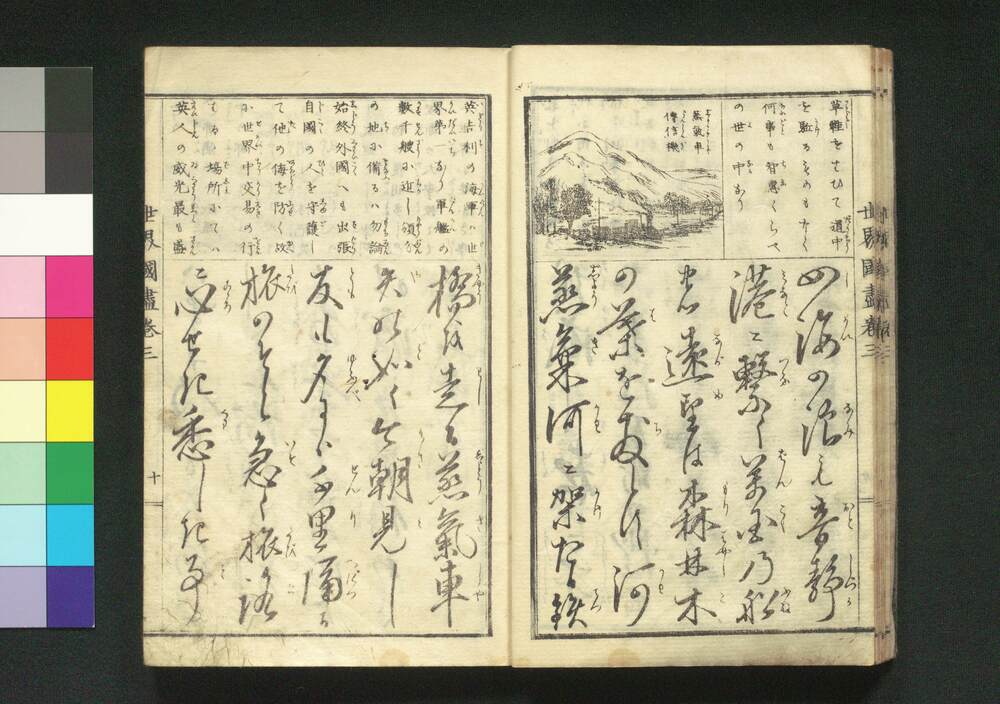 草鞋をはひて道中
を駈るものもなく
何事も智惠くらべ
の世の中なり
蒸氣車
傳信機
四海の浪も音静
港ニ繋く萬國乃船
遠望は森林木
の葉を
河
蒸氣河ニ架たる鉄
世界國盡卷三
英吉利の海軍ハ世
界第一なり軍艦の
數千艘に近し領分
の地に備るハ勿論
始終外國へも出張
自國の人を守護し
て他の侮を防く故
に世界中交易の行
はるゝ場所にてハ
英人の威光最も盛
橋を走る蒸氣車
矢の如く今朝見し
友も夕にハ千里隔る
旅のそら急く旅路に
心せき
世界國盡卷三
十